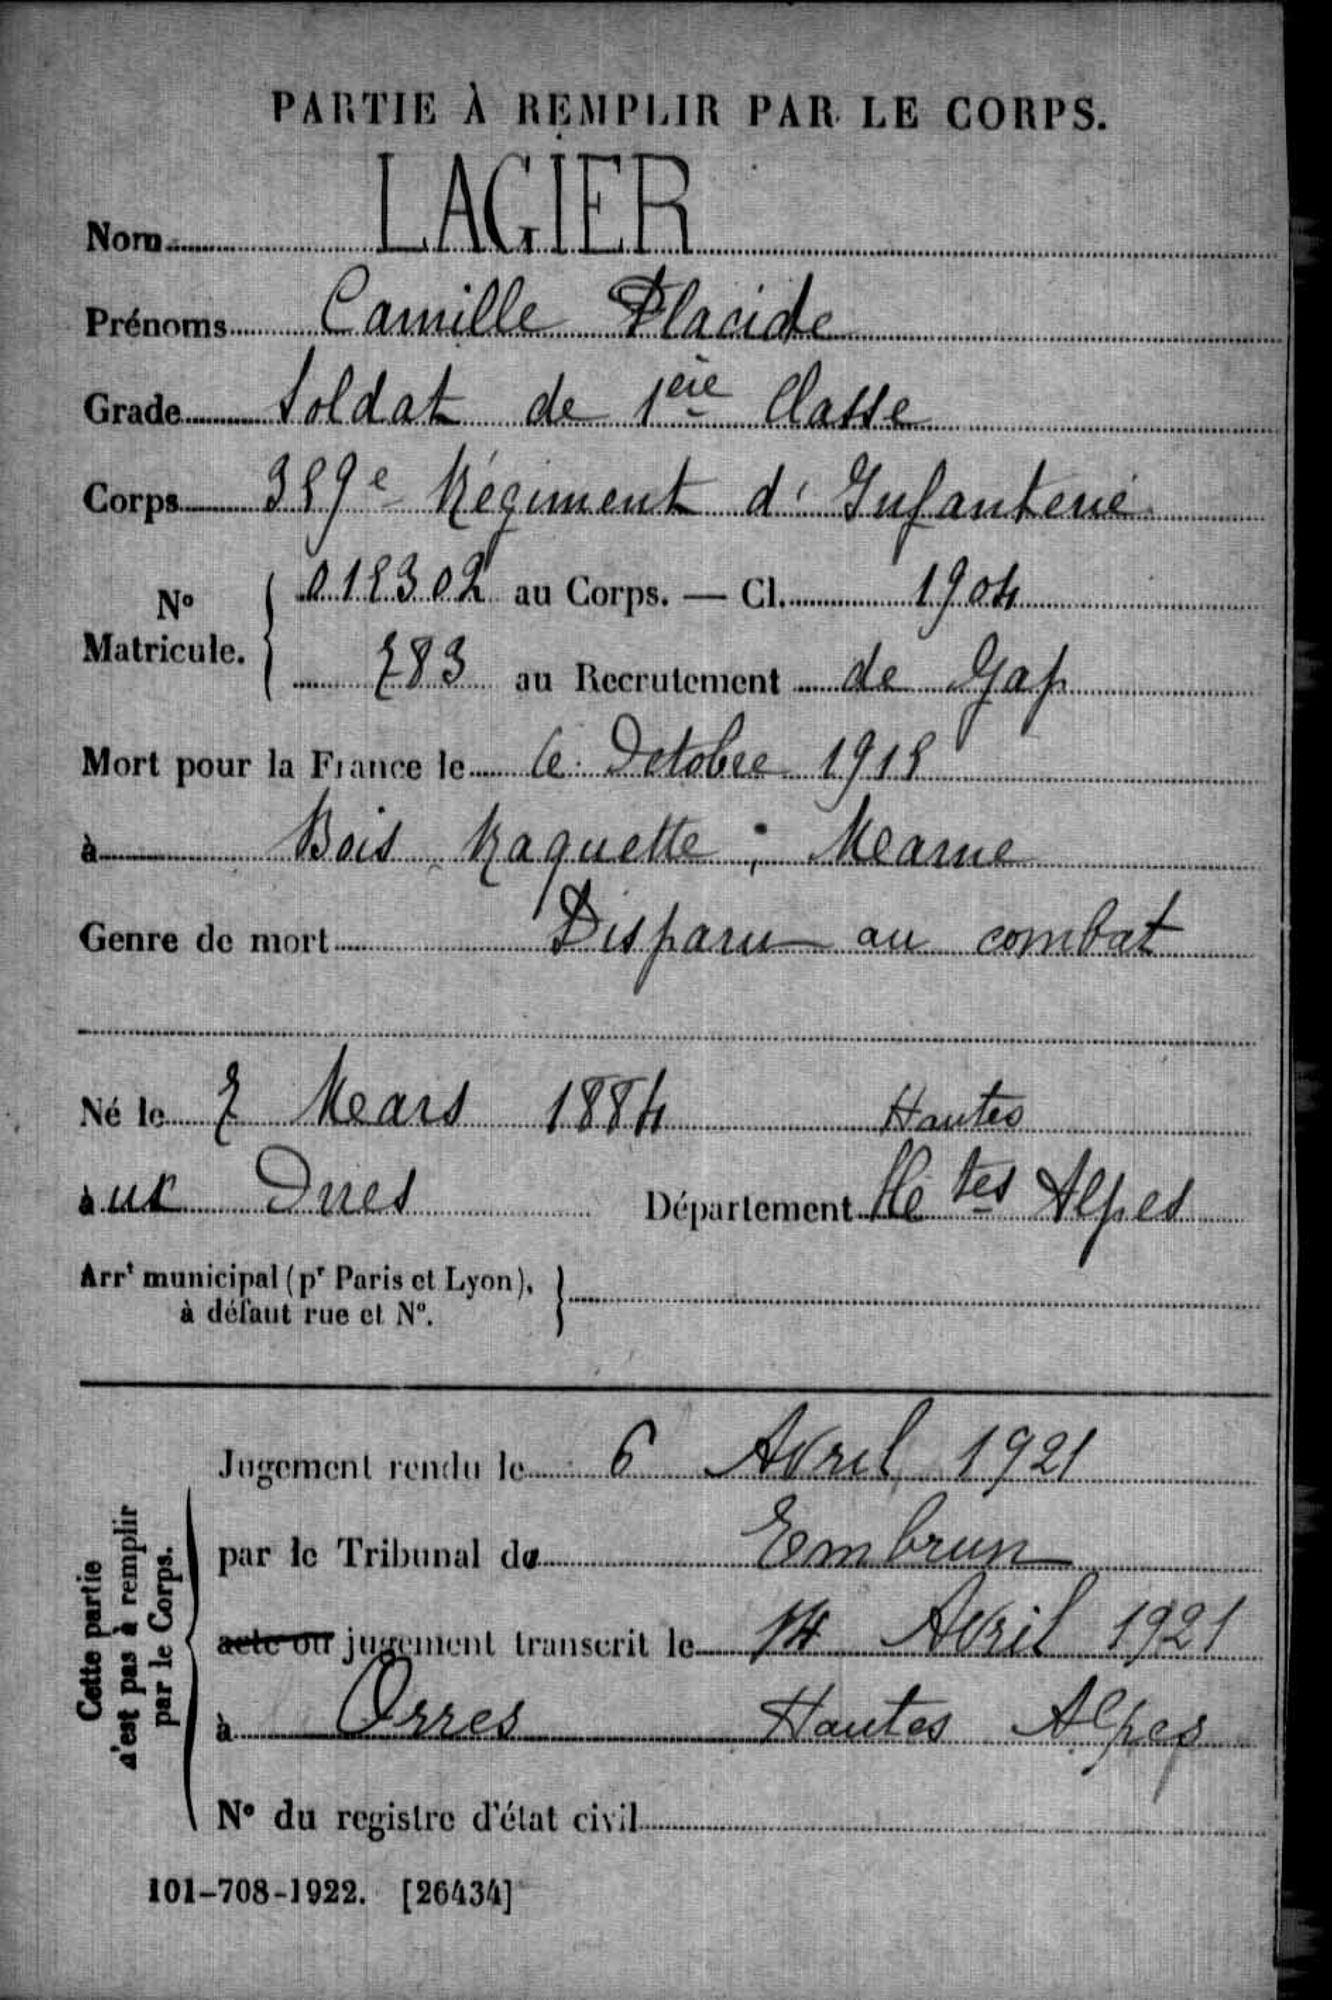 PARTIE À REMPLIR PAR LE CORPS.
Nom LAGIER
Prénoms Camille Placide
Grade Soldat de 1ère Classe
Corps 359e Régiment d'Infanterie
No Matricule. 015302 au Corps. — Cl. 1904
783 au Recrutement de Gap
Mort pour la France le 6 Octobre 1915
à Bois Raquette; Marne
Genre de mort Disparu au combat
Né le 7 Mars 1884 Hautes
aux Département Hé tes Alpes
Arrt municipal (pr Paris et Lyon),
à défaut rue et No.
Cette partie
n'est pas à remplir
par le Corps.
Jugement rendu le 6 Avril 1921
par le Tribunal de Embrun
acte ou jugement transcrit le 14 Avril 1921
à Orres Hautes Alpes
No du registre d'état civil
101-708-1922. [26434]